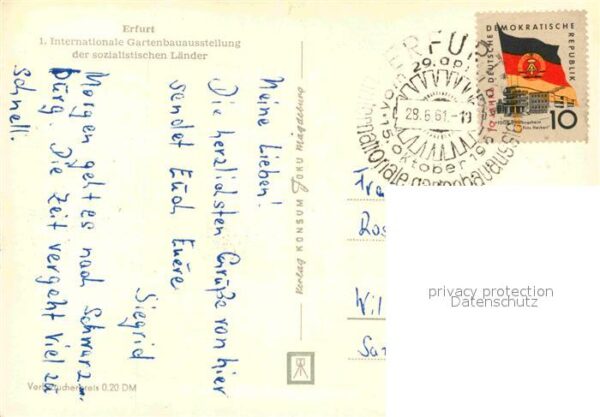 Erfurt
1. Internationale Gartenbauausstellung
der sozialistischen Länder
Meine Lieben!
Die herzlichsten Grüße von hier
sendet Euch Euere
Siegrid
Morgen geht es nach Schwarz-
burg. Die Zeit vergeht viel zu
schnell.
Verbraucherpreis 0.20 DM
verlag KONSUM FOKU magdeburg
ERFURT
29. april
15. oktober
28.6.61.-
internationale gartenbauausst
DEUTSCHE DEMOKRATISCHE REPUBLIK
10 JAHRE
10
Fra
Ros
Wil
Sa
privacy protection
Datenschutz